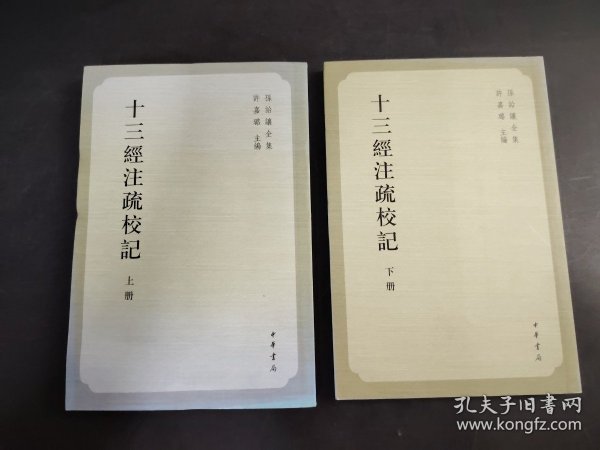 孫詒讓全集
許嘉璐 主編
十三經注疏校記
上册
中華書局
孫詒讓全集
許嘉璐 主編
十三經注疏校記
下册
中華書局
孔夫子旧書网
www.kongfz.com